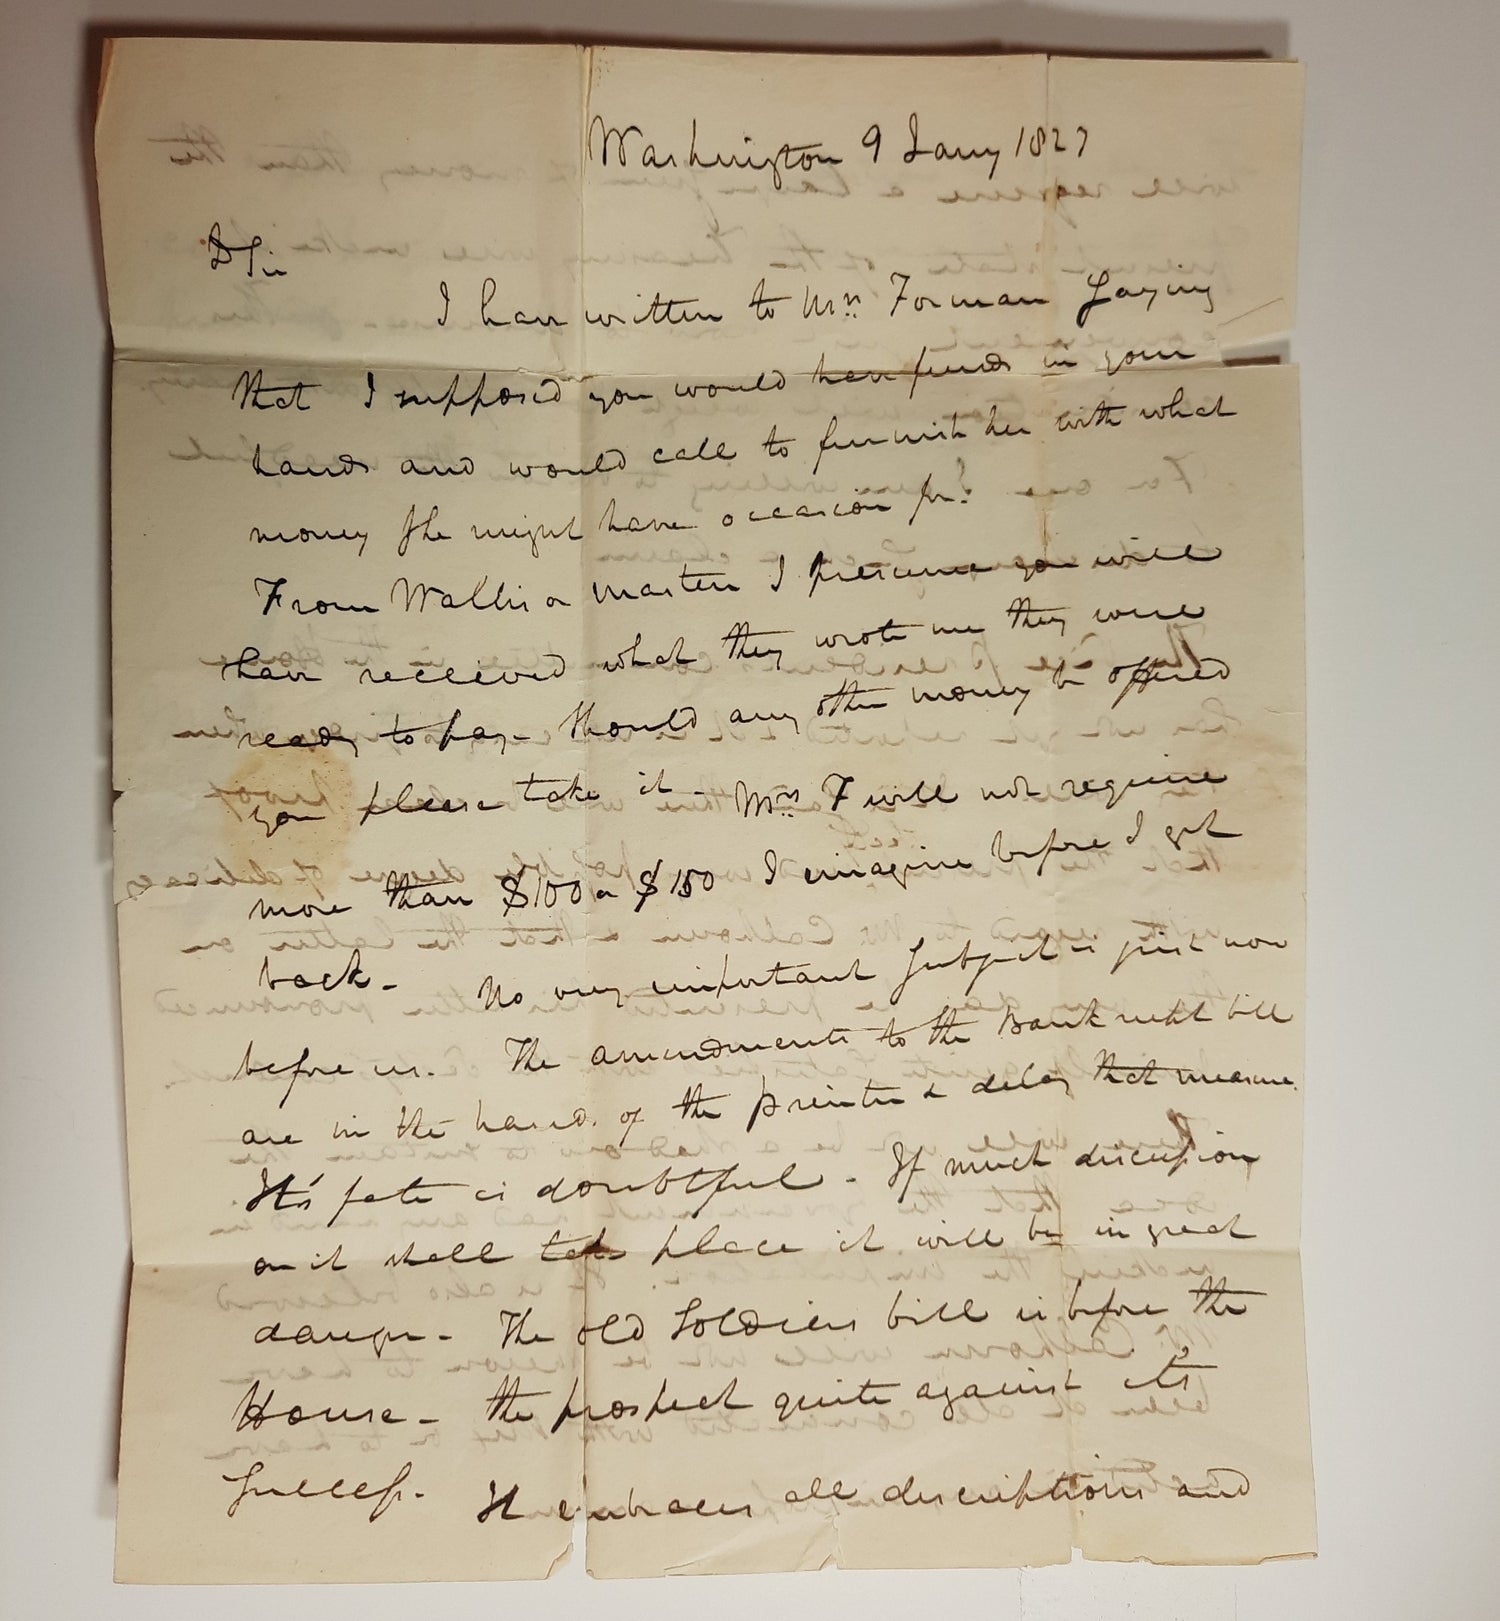 Washington 9 Jany 1827
D Sir
I have written to Mrs. Forman Saying
that I supposed you would have funds in your
hands and would call to furnish her with what
money She might have occasion for.
From Wallis or Masten I presume you will
have received what they wrote me they were
ready to pay - Should any other money be offered
you please take it - Mrs. F will not require
more than $100 or $150 I imagine before I get
back - No very important Subject is just now
before us. The amendments to the Bankrupt bill
are in the hands of the printer & delay that measure.
It's fate is doubtful - If much discussion
on it shall take place it will be in great
danger - The old Soldiers bill is before the
House - the prospect quite against its
Success - It embraces all descriptions and